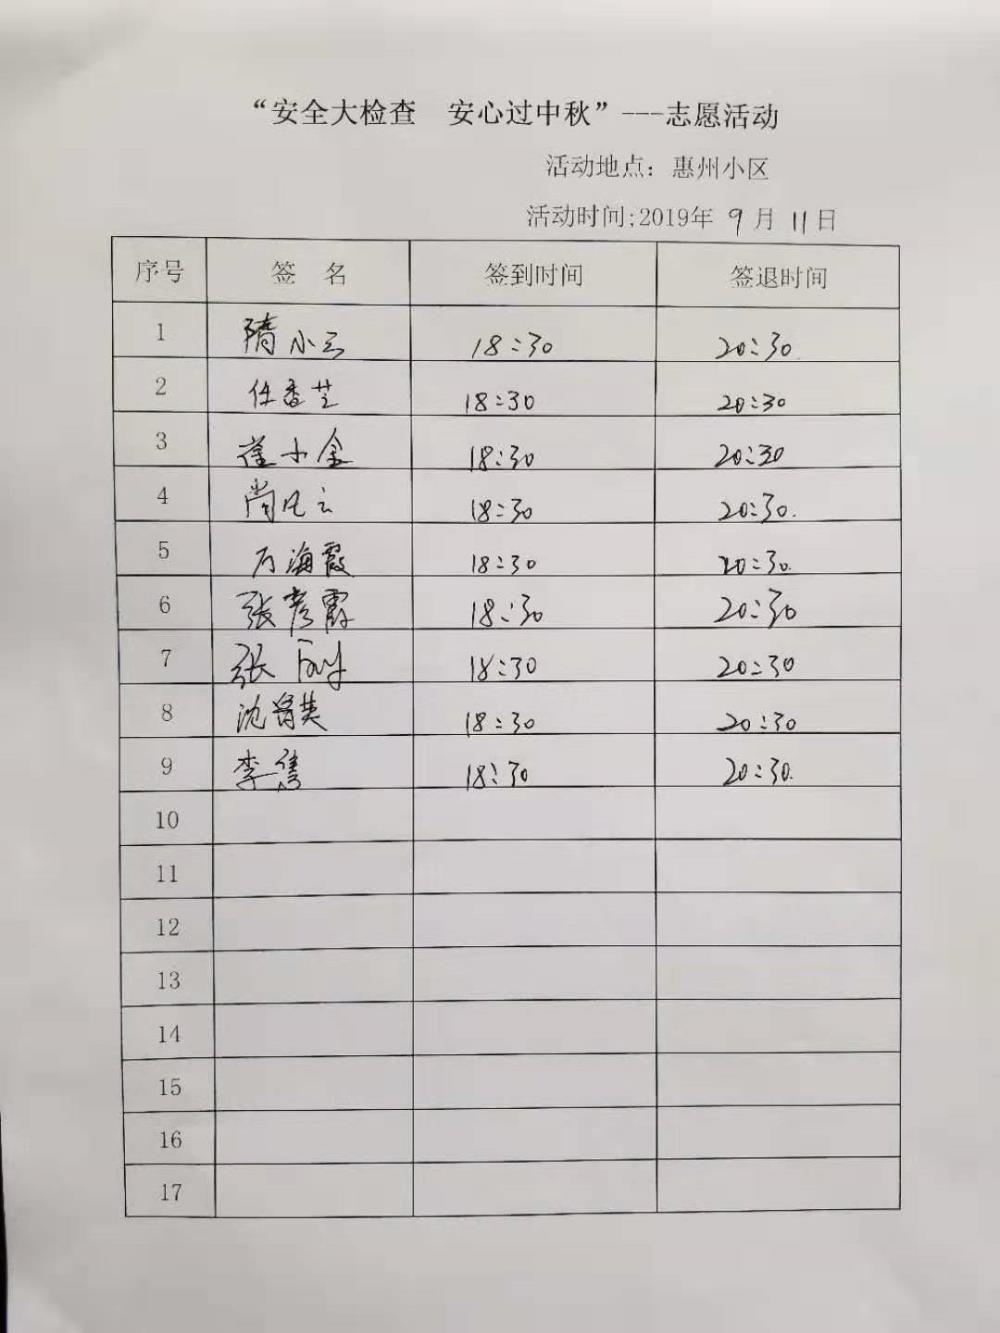 “安全大检查　安心过中秋”---志愿活动
活动地点：惠州小区
活动时间;2019年 9 月 11 日
序号 签 名 签到时间 签退时间
1 隋小云 18:30 20:30
2 任香芝 18:30 20:30
3 崔小金 18:30 20:30
4 尚凡云 18:30 20:30.
5 万海霞 18:30 20:30.
6 张彦霞 18:30 20:30
7 张 18:30 20:30
8 沈 英 18:30 20:30
9 李隽 18:30 20:30.
10
11
12
13
14
15
16
17